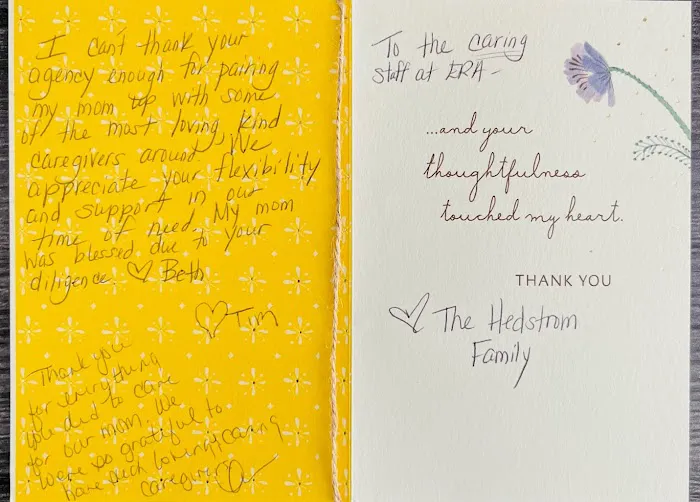 I can't thank your
agency enough for pairing
my mom up with some
of the most loving, kind
caregivers around. We
appreciate your flexibility
and support in our
time of need. My mom
was blessed due to your
diligence. ♡ Beth
♡ Tim
Thank you
for everything
you did to care
for our mom. We
were so grateful to
have such loving, caring
caregivers
To the caring
staff at ERA -
...and your
thoughtfulness
touched my heart.
THANK YOU
♡ The Hedstrom
Family